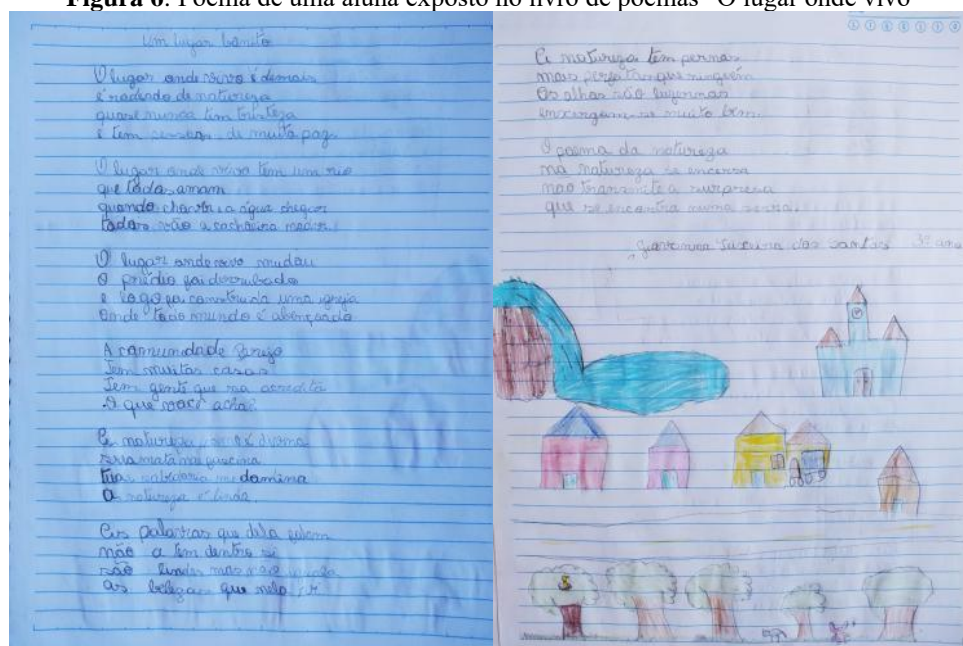 Figura 6. Poema de uma aluna exposto no livro de poemas "O lugar onde vivo"
Um lugar bonito
O lugar onde vivo é demais
é rodeado de natureza
quase nunca tem tristeza
e tem pessoas de muita paz
O lugar onde vivo tem um rio
que todos amam
quando chove a água chega
todos vão a cachoeira
O lugar onde vivo mudou
O prédio foi derrubado
e logo foi construida uma igreja
Onde todo mundo é abençoado
A comunidade
Tem muitas casas
Tem gente que não acredita
O que você acha?
A natureza é divina
sua mata me fascina
sua sabedoria me domina
A natureza é linda
As palavras que dela
não a tem dentro
são lindas mas não
as belezas que nela
A natureza tem pernas
mais que ninguém
Os olhos são
enxergam muito bem
O poema da natureza
na natureza se encerra
não transmite a surpresa
que se encontra numa serra
dos Santos 3º ano